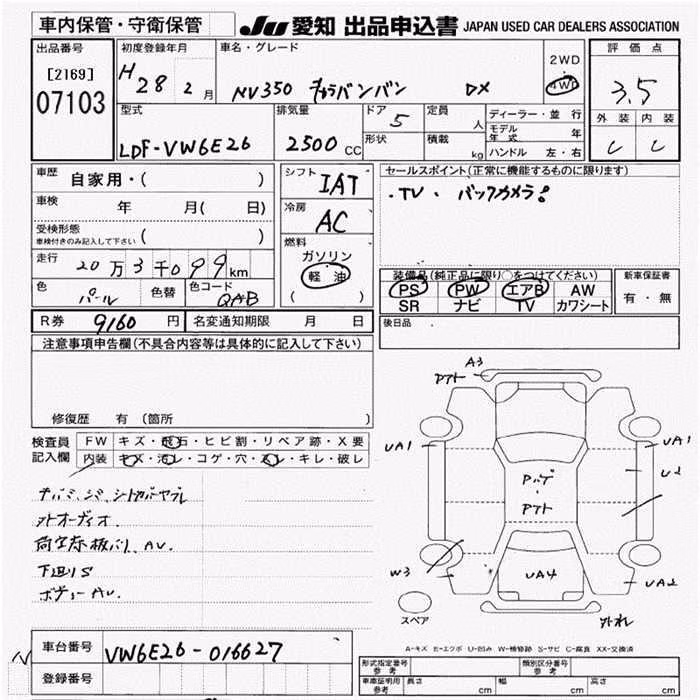 車内保管・守衛保管
JU 愛知 出品申込書 JAPAN USED CAR DEALERS ASSOCIATION
出品番号
[2169]
07103
初度登録年月
H 28 2 月
車名・グレード
NV350 キャラバンバン DX
2WD
4WD
評価点
3.5
外装 内装
C C
型式
LDF-VW6E26
排気量
2500 CC
ドア 5
形状
定員 人
積載 kg
ディーラー・並行
モデル年式 年
ハンドル 左・右
車歴 自家用・( )
車検 年 月( 日)
受検形態
車検付きのみ記入して下さい ( )
走行 20万3千099km
色 パール 色替 色コード QAB
シフト IAT
冷房 AC
燃料
ガソリン
軽油
( )
セールスポイント(正常に機能するものに限ります)
・TV、バックカメラ
装備品(純正品に限り○をつけてください)
PS PW エアB AW
SR ナビ TV カワシート
新車保証書
有・無
R券 9160 円 名変通知期限 月 日
後日品
注意事項申告欄(不具合内容等は具体的に記入して下さい)
修復歴 有 (箇所 )
検査員記入欄
FW キズ・飛石・ヒビ割・リペア跡・X要
内装 キズ・汚レ・コゲ・穴・スレ・キレ・破レ
外オーディオ
下廻りS
ボデーAU
A3
アト
UA1
UA1
U2
アト
W3
UA4
UA2
スペア
外れ
A-キズ E-エクボ U-凹み W-補修跡 S-サビ C-腐食 XX-交換済
車台番号 VW6E26-016627
登録番号
形式指定番号 参考
類別区分番号 参考
車庫証明用 参考 長さ cm 幅 cm 高さ cm